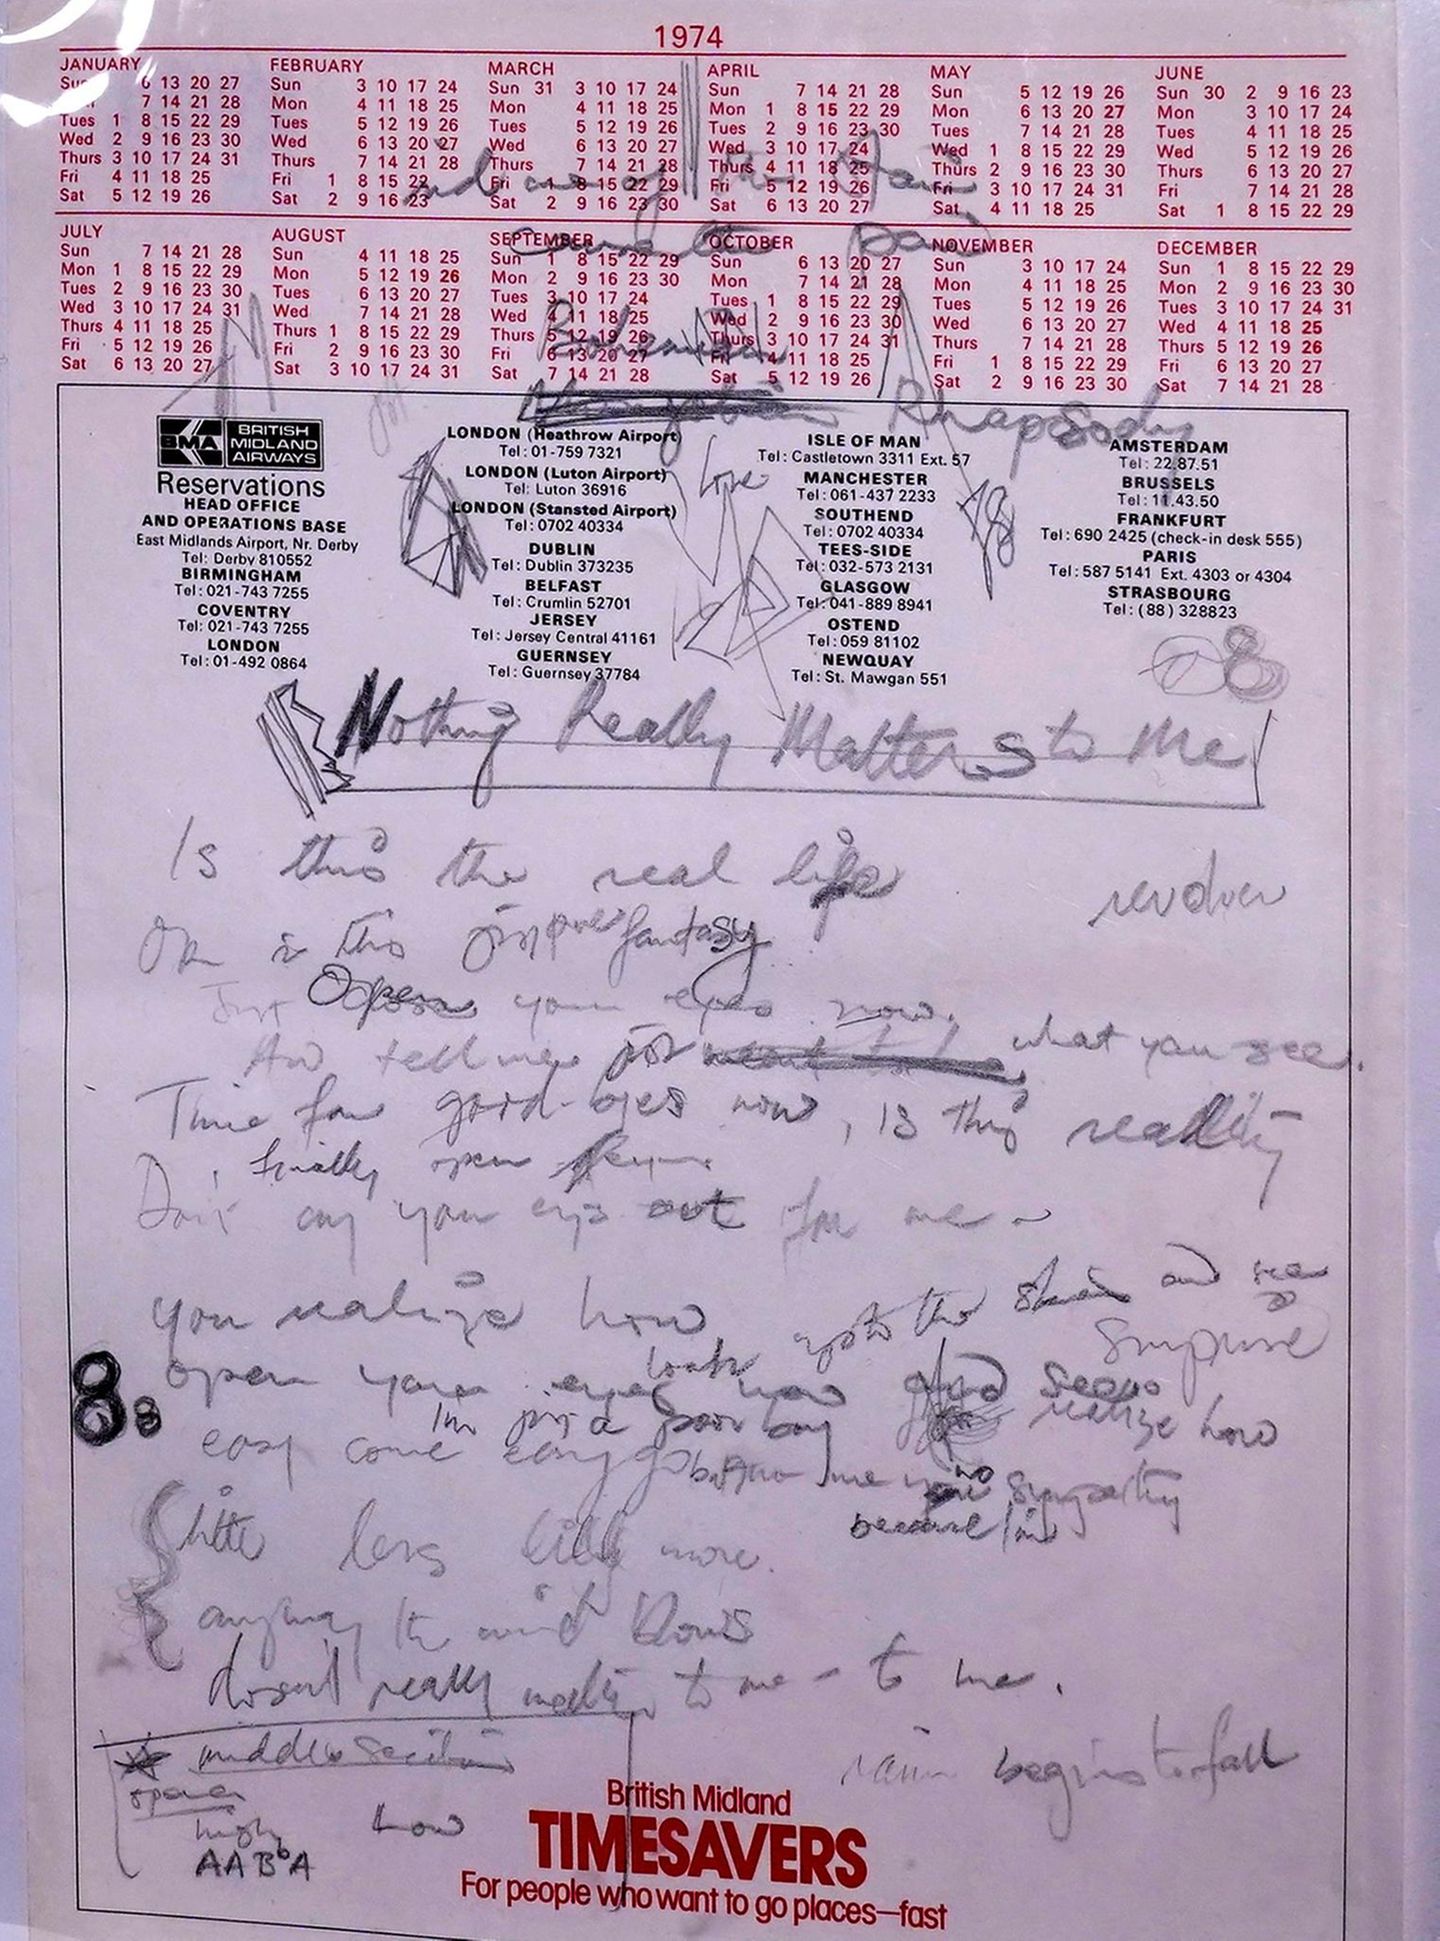 1974
JANUARY FEBRUARY MARCH APRIL MAY JUNE
Sun 6 13 20 27 Sun 3 10 17 24 Sun 31 3 10 17 24 Sun 7 14 21 28 Sun 5 12 19 26 Sun 30 2 9 16 23
7 14 21 28 Mon 4 11 18 25 Mon 4 11 18 25 Mon 1 8 15 22 29 Mon 6 13 20 27 Mon 3 10 17 24
Tues 1 8 15 22 29 Tues 5 12 19 26 Tues 5 12 19 26 Tues 2 9 16 23 30 Tues 7 14 21 28 Tues 4 11 18 25
Wed 2 9 16 23 30 Wed 6 13 20 27 Wed 6 13 20 27 Wed 3 10 17 24 Wed 1 8 15 22 29 Wed 5 12 19 26
Thurs 3 10 17 24 31 Thurs 7 14 21 28 Thurs 7 14 21 28 Thurs 4 11 18 25 Thurs 2 9 16 23 30 Thurs 6 13 20 27
Fri 4 11 18 25 Fri 1 8 15 22 Fri 1 8 15 22 29 Fri 5 12 19 26 Fri 3 10 17 24 31 Fri 7 14 21 28
Sat 5 12 19 26 Sat 2 9 16 23 Sat 2 9 16 23 30 Sat 6 13 20 27 Sat 4 11 18 25 Sat 1 8 15 22 29
JULY AUGUST SEPTEMBER OCTOBER NOVEMBER DECEMBER
Sun 7 14 21 28 Sun 4 11 18 25 Sun 1 8 15 22 29 Sun 6 13 20 27 Sun 3 10 17 24 Sun 1 8 15 22 29
Mon 1 8 15 22 29 Mon 5 12 19 26 Mon 2 9 16 23 30 Mon 7 14 21 28 Mon 4 11 18 25 Mon 2 9 16 23 30
Tues 2 9 16 23 30 Tues 6 13 20 27 Tues 3 10 17 24 Tues 1 8 15 22 29 Tues 5 12 19 26 Tues 3 10 17 24 31
Wed 3 10 17 24 31 Wed 7 14 21 28 Wed 4 11 18 25 Wed 2 9 16 23 30 Wed 6 13 20 27 Wed 4 11 18 25
Thurs 4 11 18 25 Thurs 1 8 15 22 29 Thurs 5 12 19 26 Thurs 3 10 17 24 31 Thurs 7 14 21 28 Thurs 5 12 19 26
Fri 5 12 19 26 Fri 2 9 16 23 30 Fri 6 13 20 27 Fri 4 11 18 25 Fri 1 8 15 22 29 Fri 6 13 20 27
Sat 6 13 20 27 Sat 3 10 17 24 31 Sat 7 14 21 28 Sat 5 12 19 26 Sat 2 9 16 23 30 Sat 7 14 21 28
Bohemian
Rhapsody
BMA BRITISH MIDLAND AIRWAYS
Reservations
HEAD OFFICE
AND OPERATIONS BASE
East Midlands Airport, Nr. Derby
Tel: Derby 810552
BIRMINGHAM
Tel: 021-743 7255
COVENTRY
Tel: 021-743 7255
LONDON
Tel: 01-492 0864
LONDON (Heathrow Airport)
Tel: 01-759 7321
LONDON (Luton Airport)
Tel: Luton 36916
LONDON (Stansted Airport)
Tel: 0702 40334
DUBLIN
Tel: Dublin 373235
BELFAST
Tel: Crumlin 52701
JERSEY
Tel: Jersey Central 41161
GUERNSEY
Tel: Guernsey 37784
love
ISLE OF MAN
Tel: Castletown 3311 Ext. 57
MANCHESTER
Tel: 061-437 2233
SOUTHEND
Tel: 0702 40334
TEES-SIDE
Tel: 032-573 2131
GLASGOW
Tel: 041-889 8941
OSTEND
Tel: 059 81102
NEWQUAY
Tel: St. Mawgan 551
AMSTERDAM
Tel: 22.87.51
BRUSSELS
Tel: 11.43.50
FRANKFURT
Tel: 690 2425 (check-in desk 555)
PARIS
Tel: 587 5141 Ext. 4303 or 4304
STRASBOURG
Tel: (88) 328823
Nothing Really Matters to Me
Is this the real life
revolver
Or is this just pure fantasy
Just Open your eyes now
And tell me what you see.
Time for good-byes now, is this reality
finally open
Don't cry your eyes out for me
up to the skies and see
you realize how
surprise
look
open your eyes now and see
realize how
I'm just a poor boy
easy come easy go
no sympathy
because I'm
little less little more.
anyway the wind blows
doesn't really matter to me - to me.
middle section
rain begins to fall
opera
high low
AABbA
British Midland
TIMESAVERS
For people who want to go places—fast